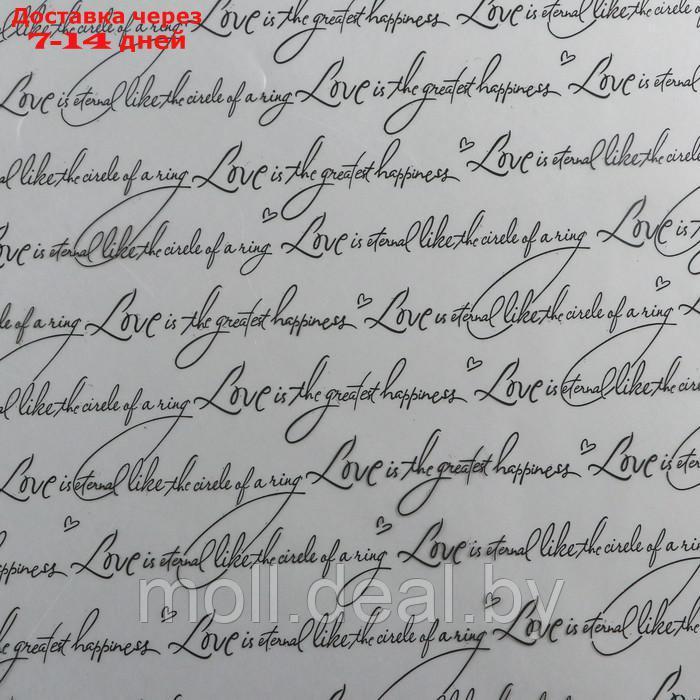 Доставка через
7-14 дней
like the circle of a ring Love is the greatest happiness Love is eternal like the circle o
Love is eternal like the circle of a ring Love is the greatest happiness Love is eternal
like the circle of a ring Love is the greatest happiness Love is eternal like the circle
Love is eternal like the circle of a ring Love is eternal like the circle of a ring Love is
of a ring Love is the greatest happiness Love is eternal like the circle of a ring
like the circle of a ring Love is the greatest happiness Love is eternal like the circle
Love is eternal like the circle of a ring Love is the greatest happiness Love is eter
ppiness Love is eternal like the circle of a ring Love is eternal like the circle of a rin
the greatest happiness Love is eternal like the circle of a ring Love is eternal like the
moll.deal.by